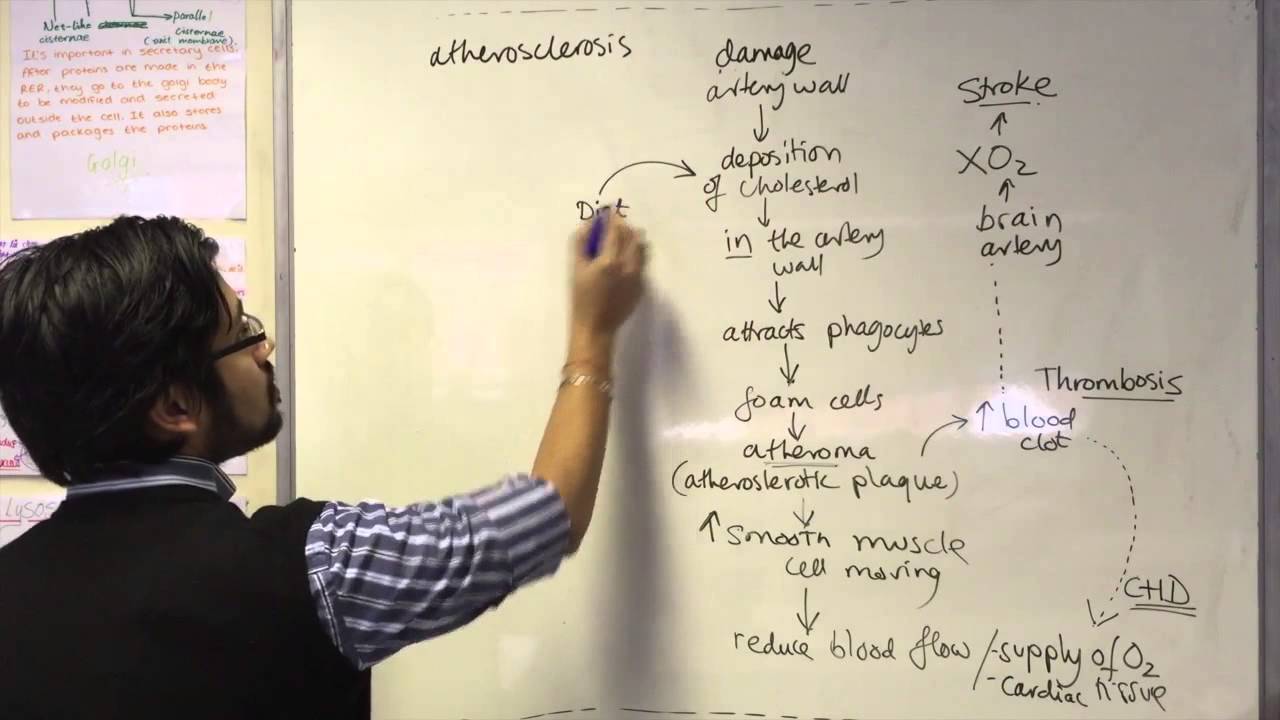 Net-like
cisternae
parallel
cisternae
(exit membrane)
It's important in secretary cells.
After proteins are made in the
RER, they go to the golgi body
to be modified and secreted
outside the cell. It also stores
and packages the proteins
Golgi
LYSOS
atherosclerosis
damage
artery wall
deposition
of cholesterol
Diet
in the artery
wall
attracts phagocytes
foam cells
atheroma
(atheroslerotic plaque)
↑ smooth muscle
cell moving
reduce blood flow / - supply of O2
- cardiac tissue
Stroke
XO2
brain
artery
Thrombosis
↑ blood
clot
CHD